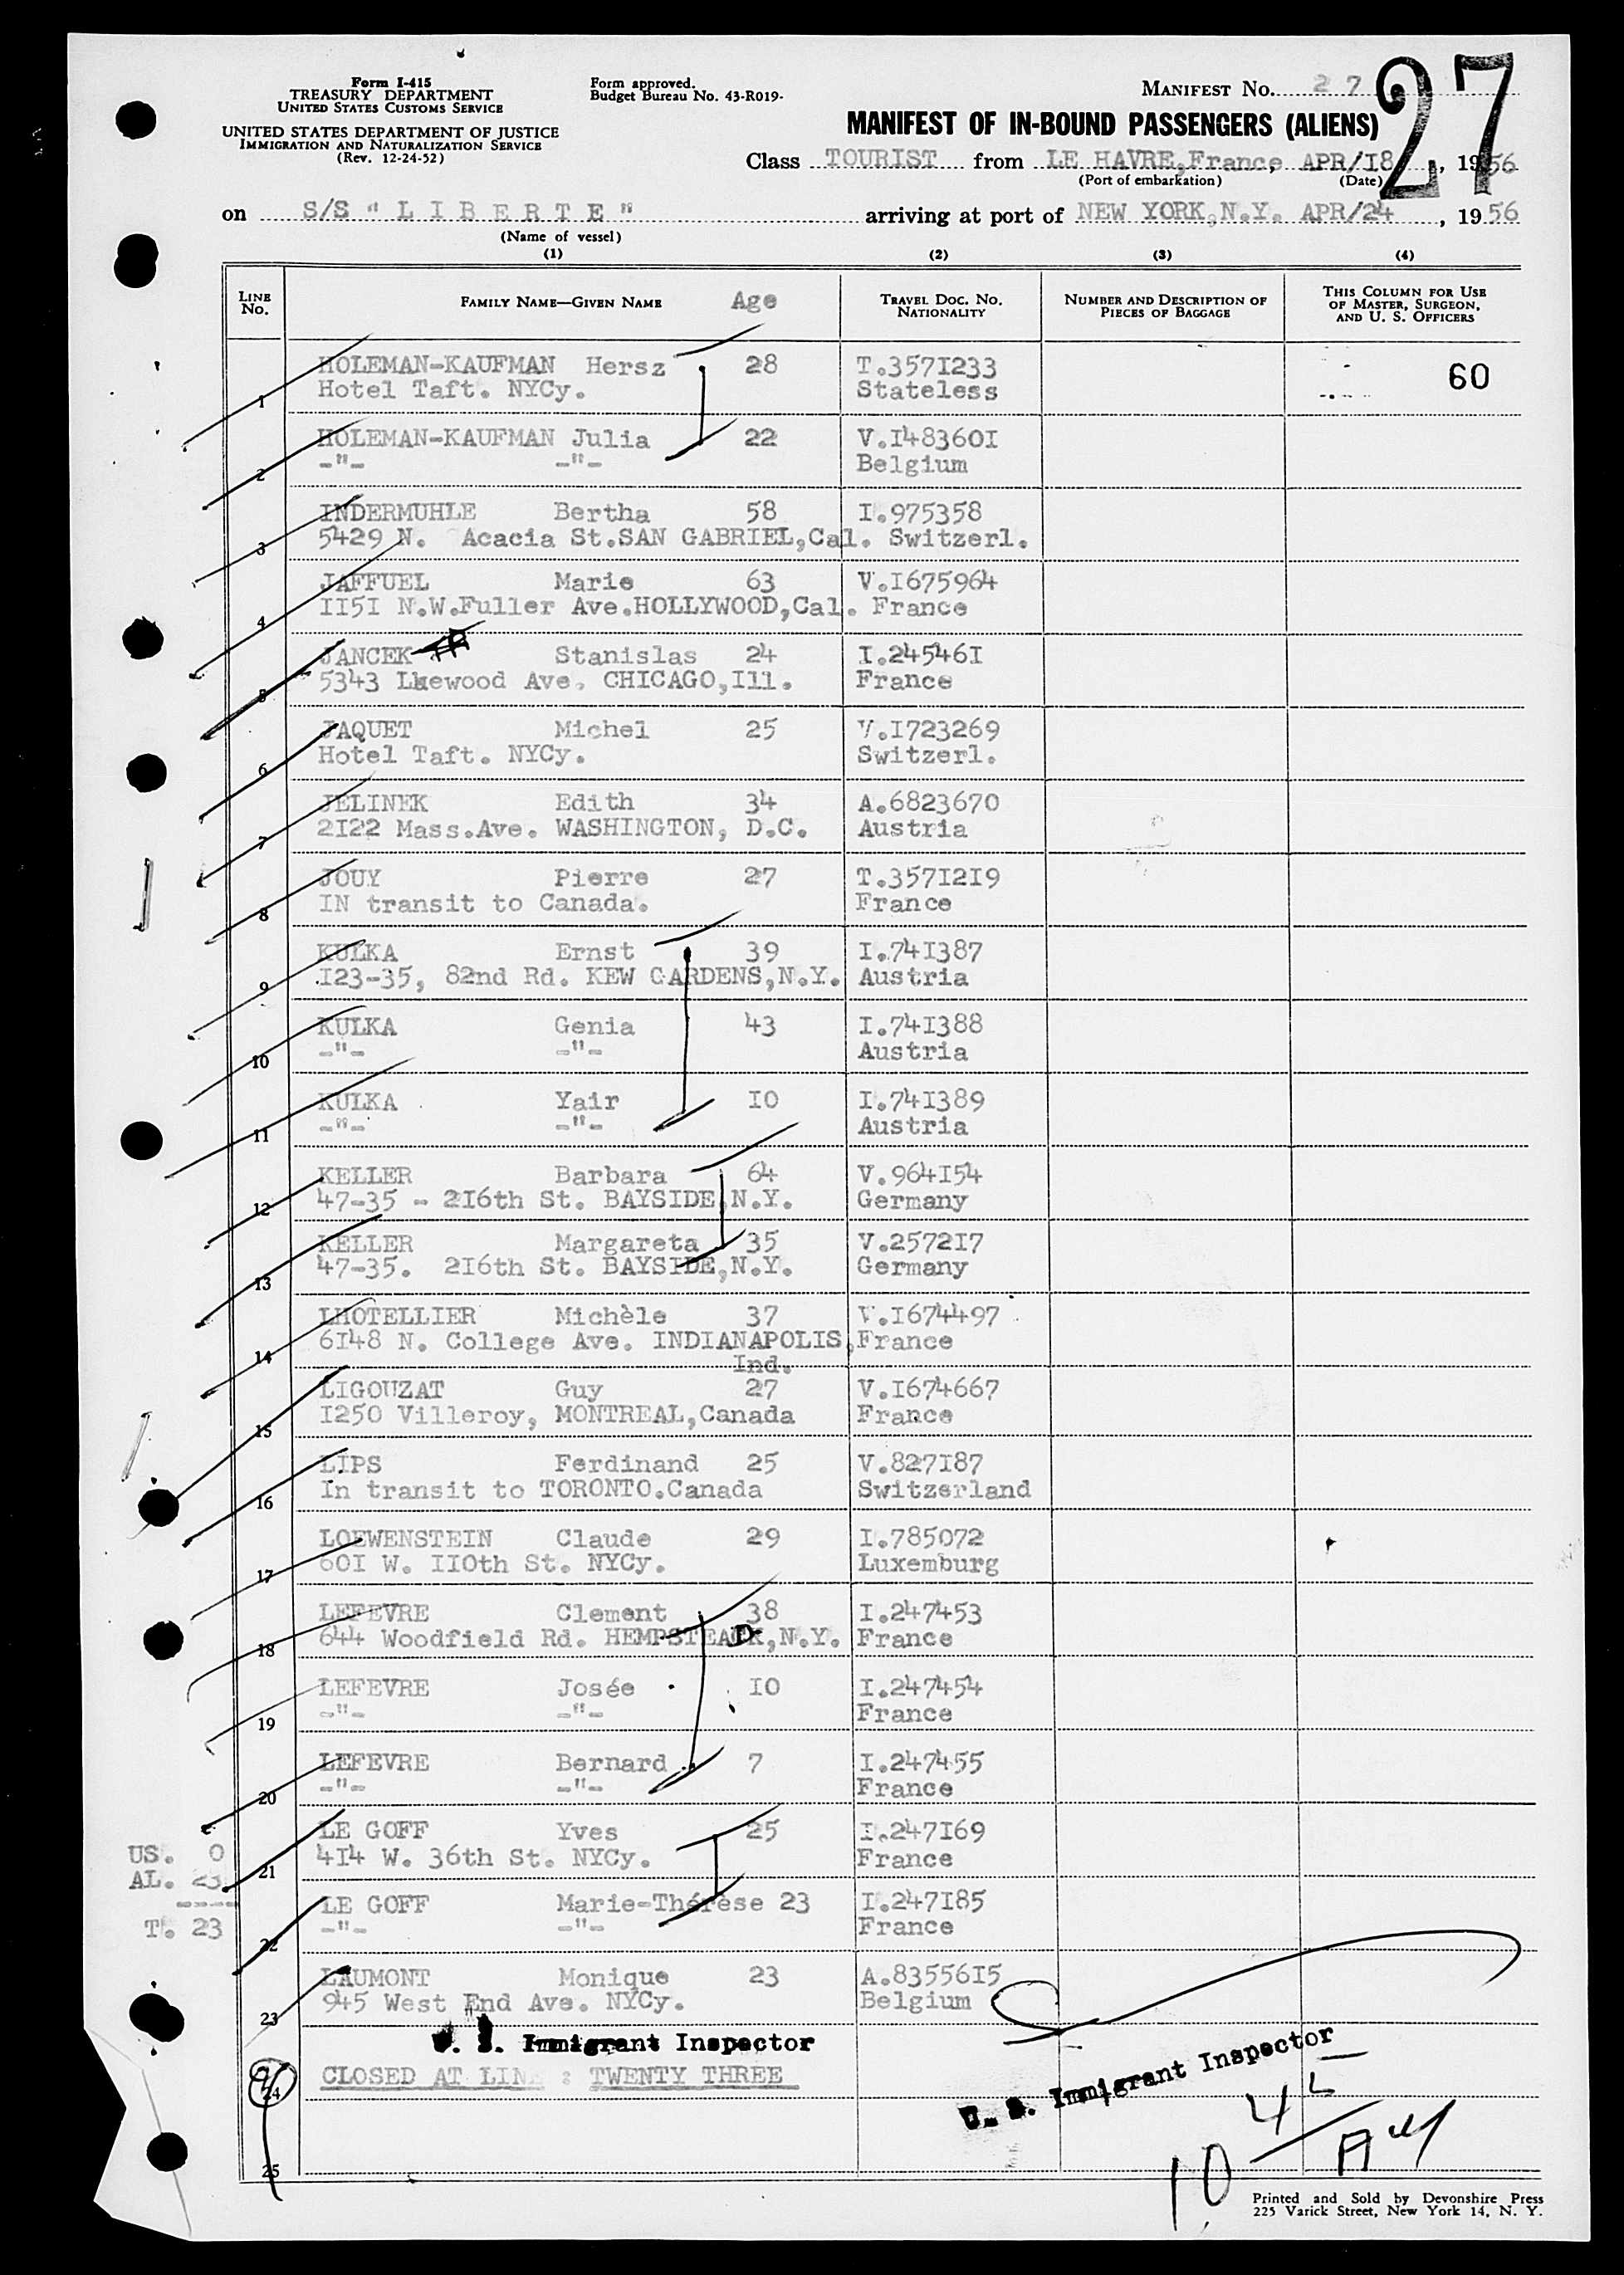 Form I-415
TREASURY DEPARTMENT
UNITED STATES CUSTOMS SERVICE
UNITED STATES DEPARTMENT OF JUSTICE
IMMIGRATION AND NATURALIZATION SERVICE
(Rev. 12-24-52)
Form approved.
Budget Bureau No. 43-R019-
MANIFEST No. 27
27
MANIFEST OF IN-BOUND PASSENGERS (ALIENS)
Class TOURIST from LE HAVRE,France, APR/I8, 1956
(Port of embarkation) (Date)
on S/S "LIBERTE" arriving at port of NEW YORK,N.Y. APR/24, 1956
(Name of vessel)
(1) (2) (3) (4)
LINE No. FAMILY NAME—GIVEN NAME Age TRAVEL DOC. No. NATIONALITY NUMBER AND DESCRIPTION OF PIECES OF BAGGAGE THIS COLUMN FOR USE OF MASTER, SURGEON, AND U. S. OFFICERS
HOLEMAN-KAUFMAN Hersz 28 T.357I233 60
1 Hotel Taft. NYCy. Stateless
HOLEMAN-KAUFMAN Julia 22 V.I48360I
2 -"- -"- Belgium
INDERMUHLE Bertha 58 I.975358
3 5429 N. Acacia St.SAN GABRIEL,Cal. Switzerl.
JAFFUEL Marie 63 V.I675964
4 II5I N.W.Fuller Ave.HOLLYWOOD,Cal. France
JANCEK Stanislas 24 I.24546I
5 5343 Lkewood Ave. CHICAGO,Ill. France
JAQUET Michel 25 V.I723269
6 Hotel Taft. NYCy. Switzerl.
JELINEK Edith 34 A.6823670
7 2I22 Mass.Ave. WASHINGTON, D.C. Austria
JOUY Pierre 27 T.357I2I9
8 IN transit to Canada. France
KULKA Ernst 39 I.74I387
9 I23-35, 82nd Rd. KEW GARDENS,N.Y. Austria
KULKA Genia 43 I.74I388
10 -"- -"- Austria
KULKA Yair IO I.74I389
11 -"- -"- Austria
KELLER Barbara 64 V.964I54
12 47-35 - 2I6th St. BAYSIDE,N.Y. Germany
KELLER Margareta 35 V.2572I7
13 47-35. 2I6th St. BAYSIDE,N.Y. Germany
LHOTELLIER Michèle 37 V.I674497
14 6I48 N. College Ave. INDIANAPOLIS, France
Ind.
LIGOUZAT Guy 27 V.I674667
15 I250 Villeroy, MONTREAL,Canada France
LIPS Ferdinand 25 V.827I87
16 In transit to TORONTO.Canada Switzerland
LOEWENSTEIN Claude 29 I.785072
17 60I W. IIOth St. NYCy. Luxemburg
LEFEVRE Clement 38 I.247453
18 644 Woodfield Rd. HEMPSTEAD,N.Y. France
LEFEVRE Josée IO I.247454
19 -"- -"- France
LEFEVRE Bernard 7 I.247455
20 -"- -"- France
LE GOFF Yves 25 I.247I69
21 4I4 W. 36th St. NYCy. France
US. 0
AL. 23
----
T. 23
LE GOFF Marie-Thérèse 23 I.247I85
22 -"- -"- France
LAUMONT Monique 23 A.83556I5
23 945 West End Ave. NYCy. Belgium
U. S. Immigrant Inspector
24 CLOSED AT LINE : TWENTY THREE
U. S. Immigrant Inspector
25
Printed and Sold by Devonshire Press
225 Varick Street, New York 14, N. Y.